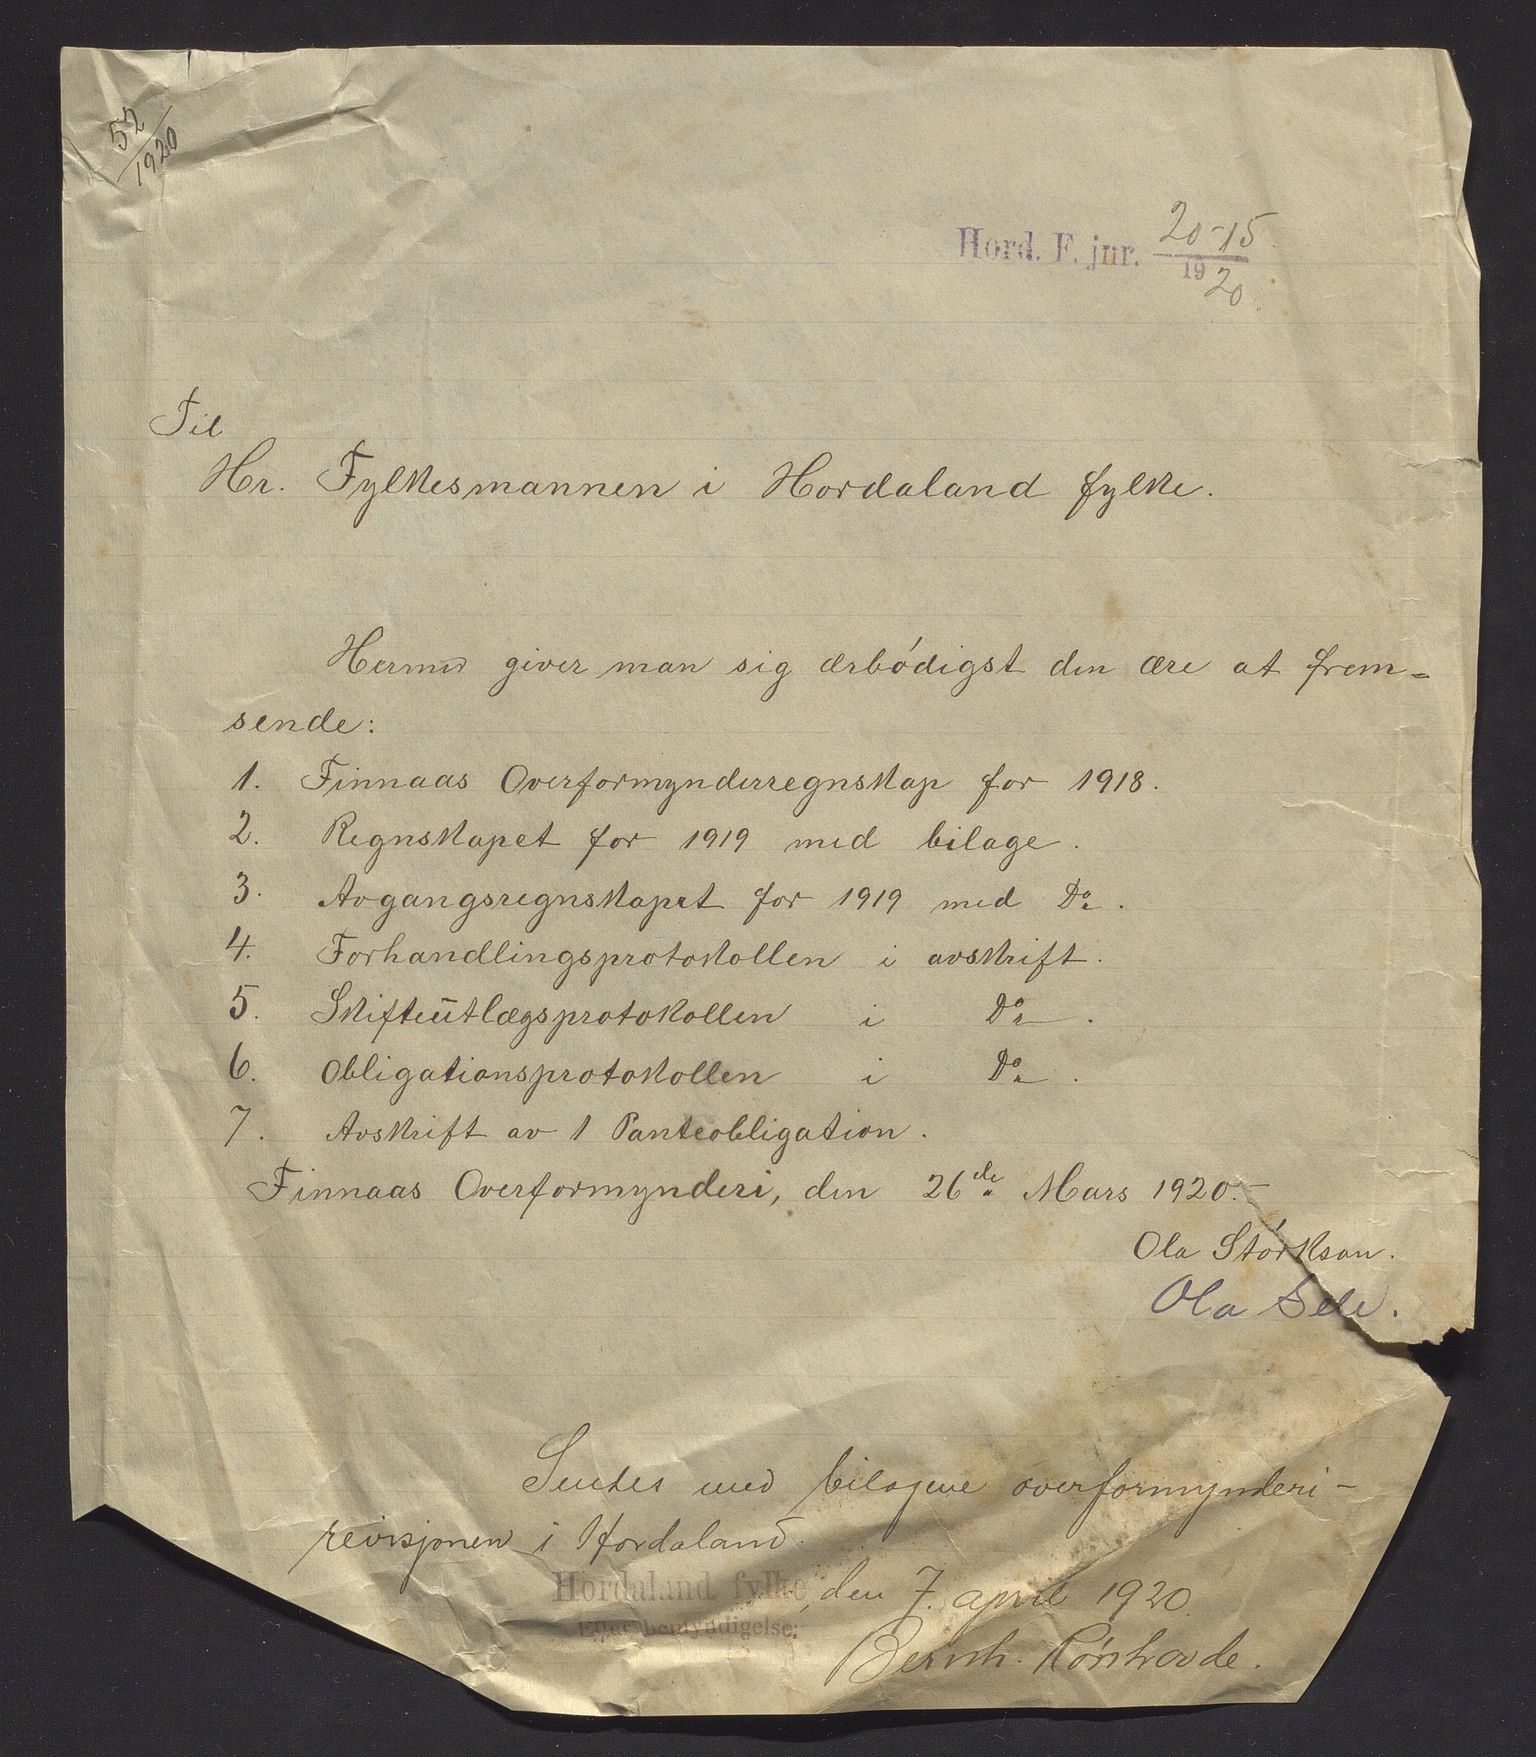 52
1920
Hord. F. jnr. 20-15
1920
Til
Hr. Fylkesmannen i Hordaland fylke.
Hermed giver man sig ærbódigst den ære at frem=
sende:
1. Finnaas Overformynderregnskap for 1918.
2. Regnskapet for 1919 med bilage.
3. Avgangsregnskapet for 1919 med Do.
4. Forhandlingsprotokollen i avskrift.
5. Skifteutlægsprotokollen i Do.
6. Obligationsprotokollen i Do.
7. Avskrift av 1 Panteobligation.
Finnaas Overformynderi, den 26de Mars 1920.-
Ola Stórkson.
Ola Sele.
Sendes med bilagene overformynderi-
revisjonen i Hordaland.
Hordaland fylke, den 7. april 1920.
Efter bemyndigelse:
Bernh. Rónhovde.